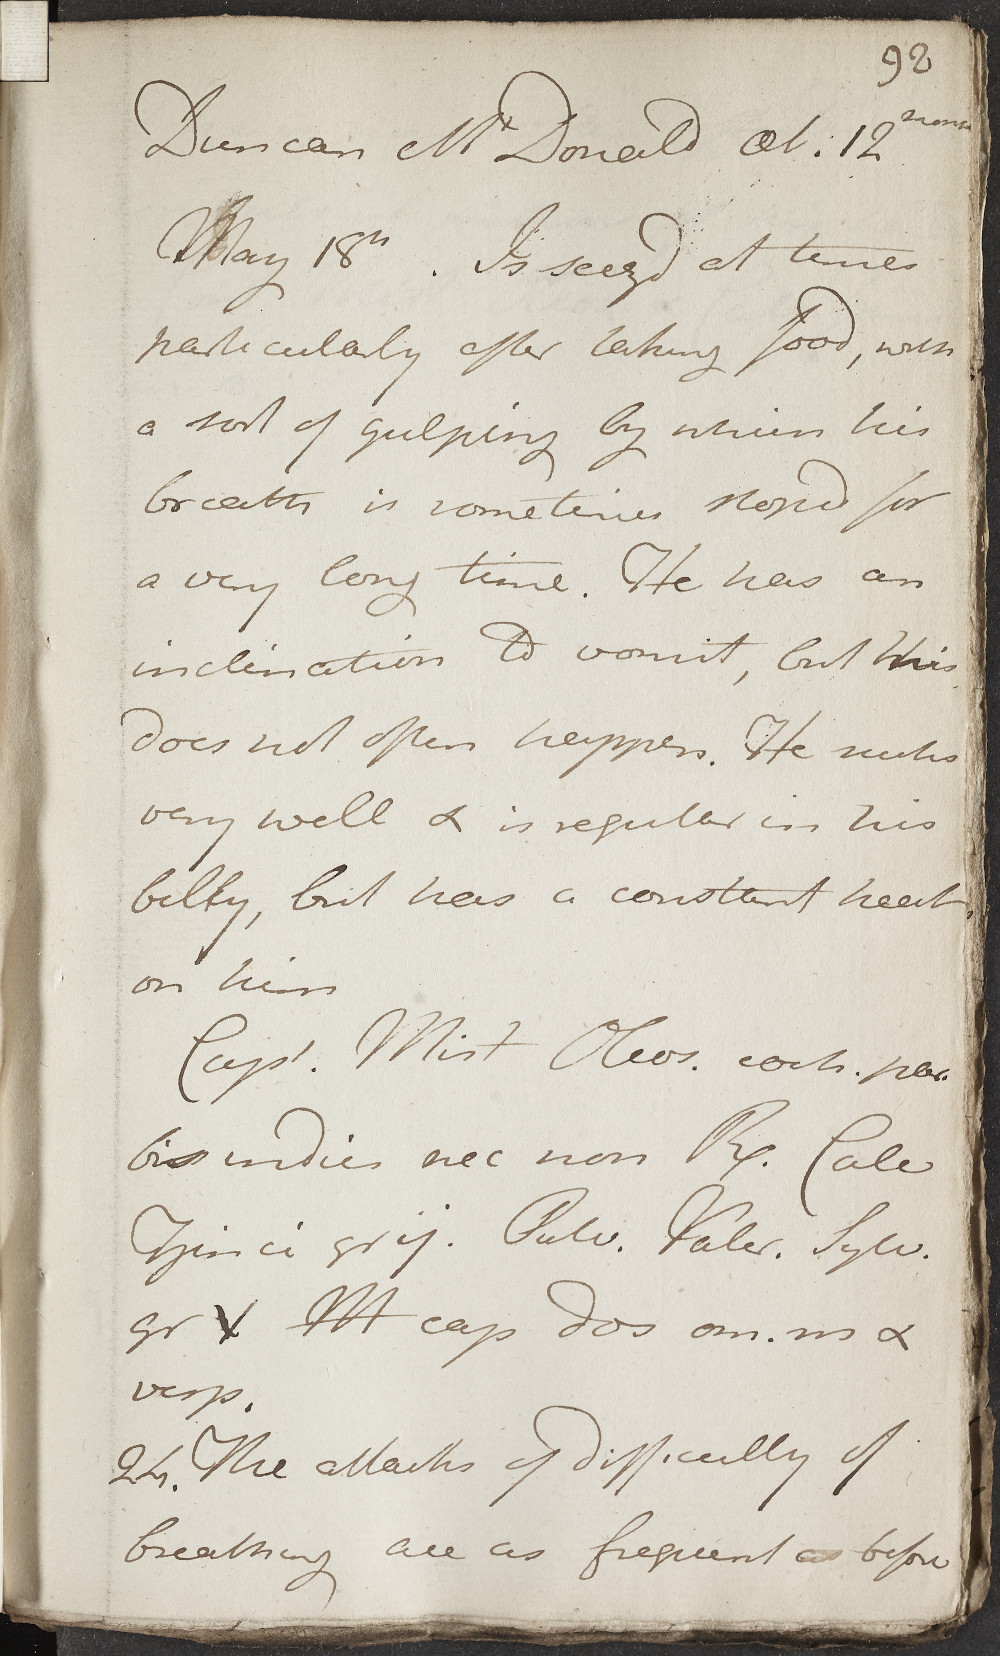 92
Duncan McDonald æt: 12 months
May 18th. Is seezd at times
particularly after taking food, with
a sort of gulping by which his
breath is sometimes stopd for
a very long time. He has an
inclination to vomit, but this
does not often happen. He sucks
very well & is regular in his
belly, but has a constant heat
on him
Capt. Mist Oleos. coch. par.
bis indies nec non Rx. Calc
Zinci gr ij. Pulv. Valer. Sylv.
gr V M cap dos om. m &
vesp.
24. The attacks of difficulty of
breathing are as frequent as before